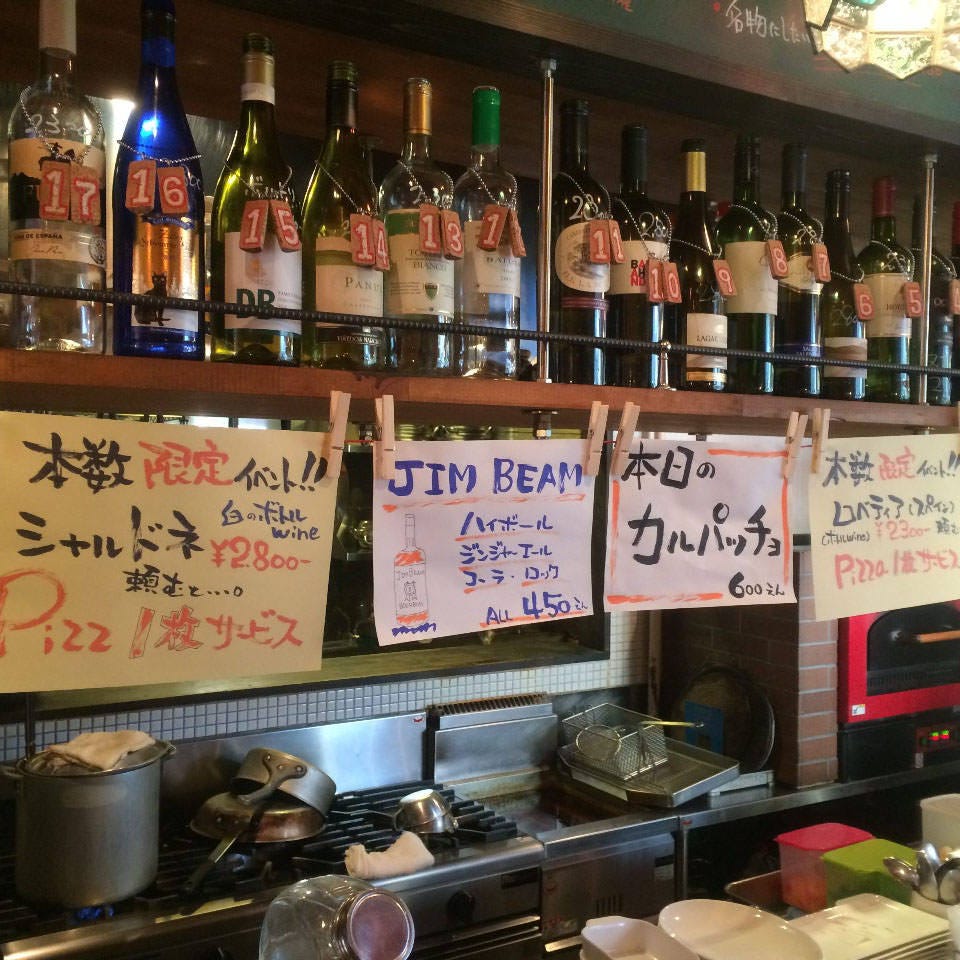 名物にしたい
17
16
15
14
13
1
11
10
9
8
7
6
5
DE ESPAÑA
DB
PAN
BIANCO
LAGA
本数限定イベント!!
シャルドネ
白のボトル
wine
¥2800-
頼むと....。
Pizz 1枚サービス
JIM BEAM
ハイボール
ジンジャーエール
コーラ・ロック
ALL 450えん
JIM BEAM
BOURBON
本日の
カルパッチョ
600えん
本数限定イベント!!
ロベティア(スペイン)
(ボトルwine) ¥2300- 頼む
Pizza 1枚サービス